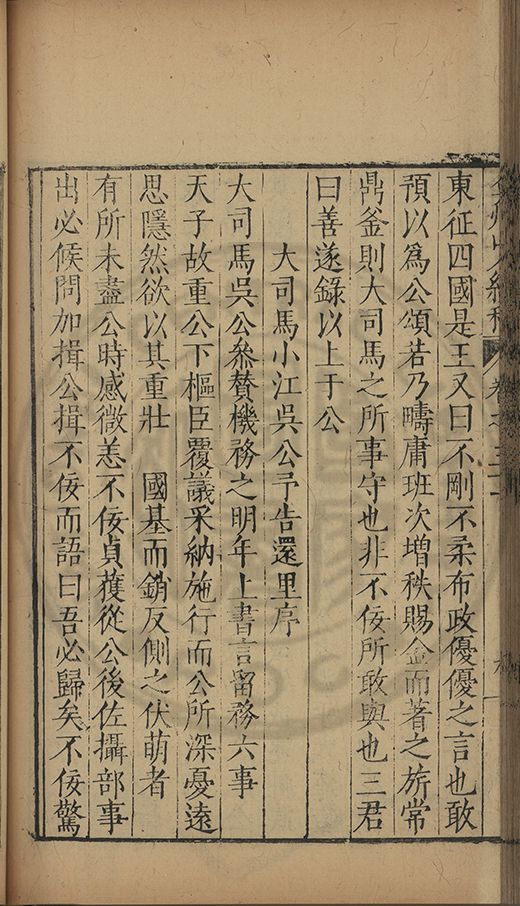 東征四國是王又曰不剛不柔布政優優之言也敢
預以為公頌若乃疇庸班次增秩賜金而著之旂常
鼎釜則大司馬之所事守也非不佞所敢與也三君
曰善遂錄以上于公
大司馬小江吳公予告還里序
大司馬吳公叅賛機務之明年上書言留務六事
天子故重公下樞臣覆議采納施行而公所深憂遠
思隱然欲以其重壯 國基而銷反側之伏萌者
有所未盡公時感微恙不佞貞獲從公後佐攝部事
出必候問加揖公揖不佞而語曰吾必歸矣不佞驚